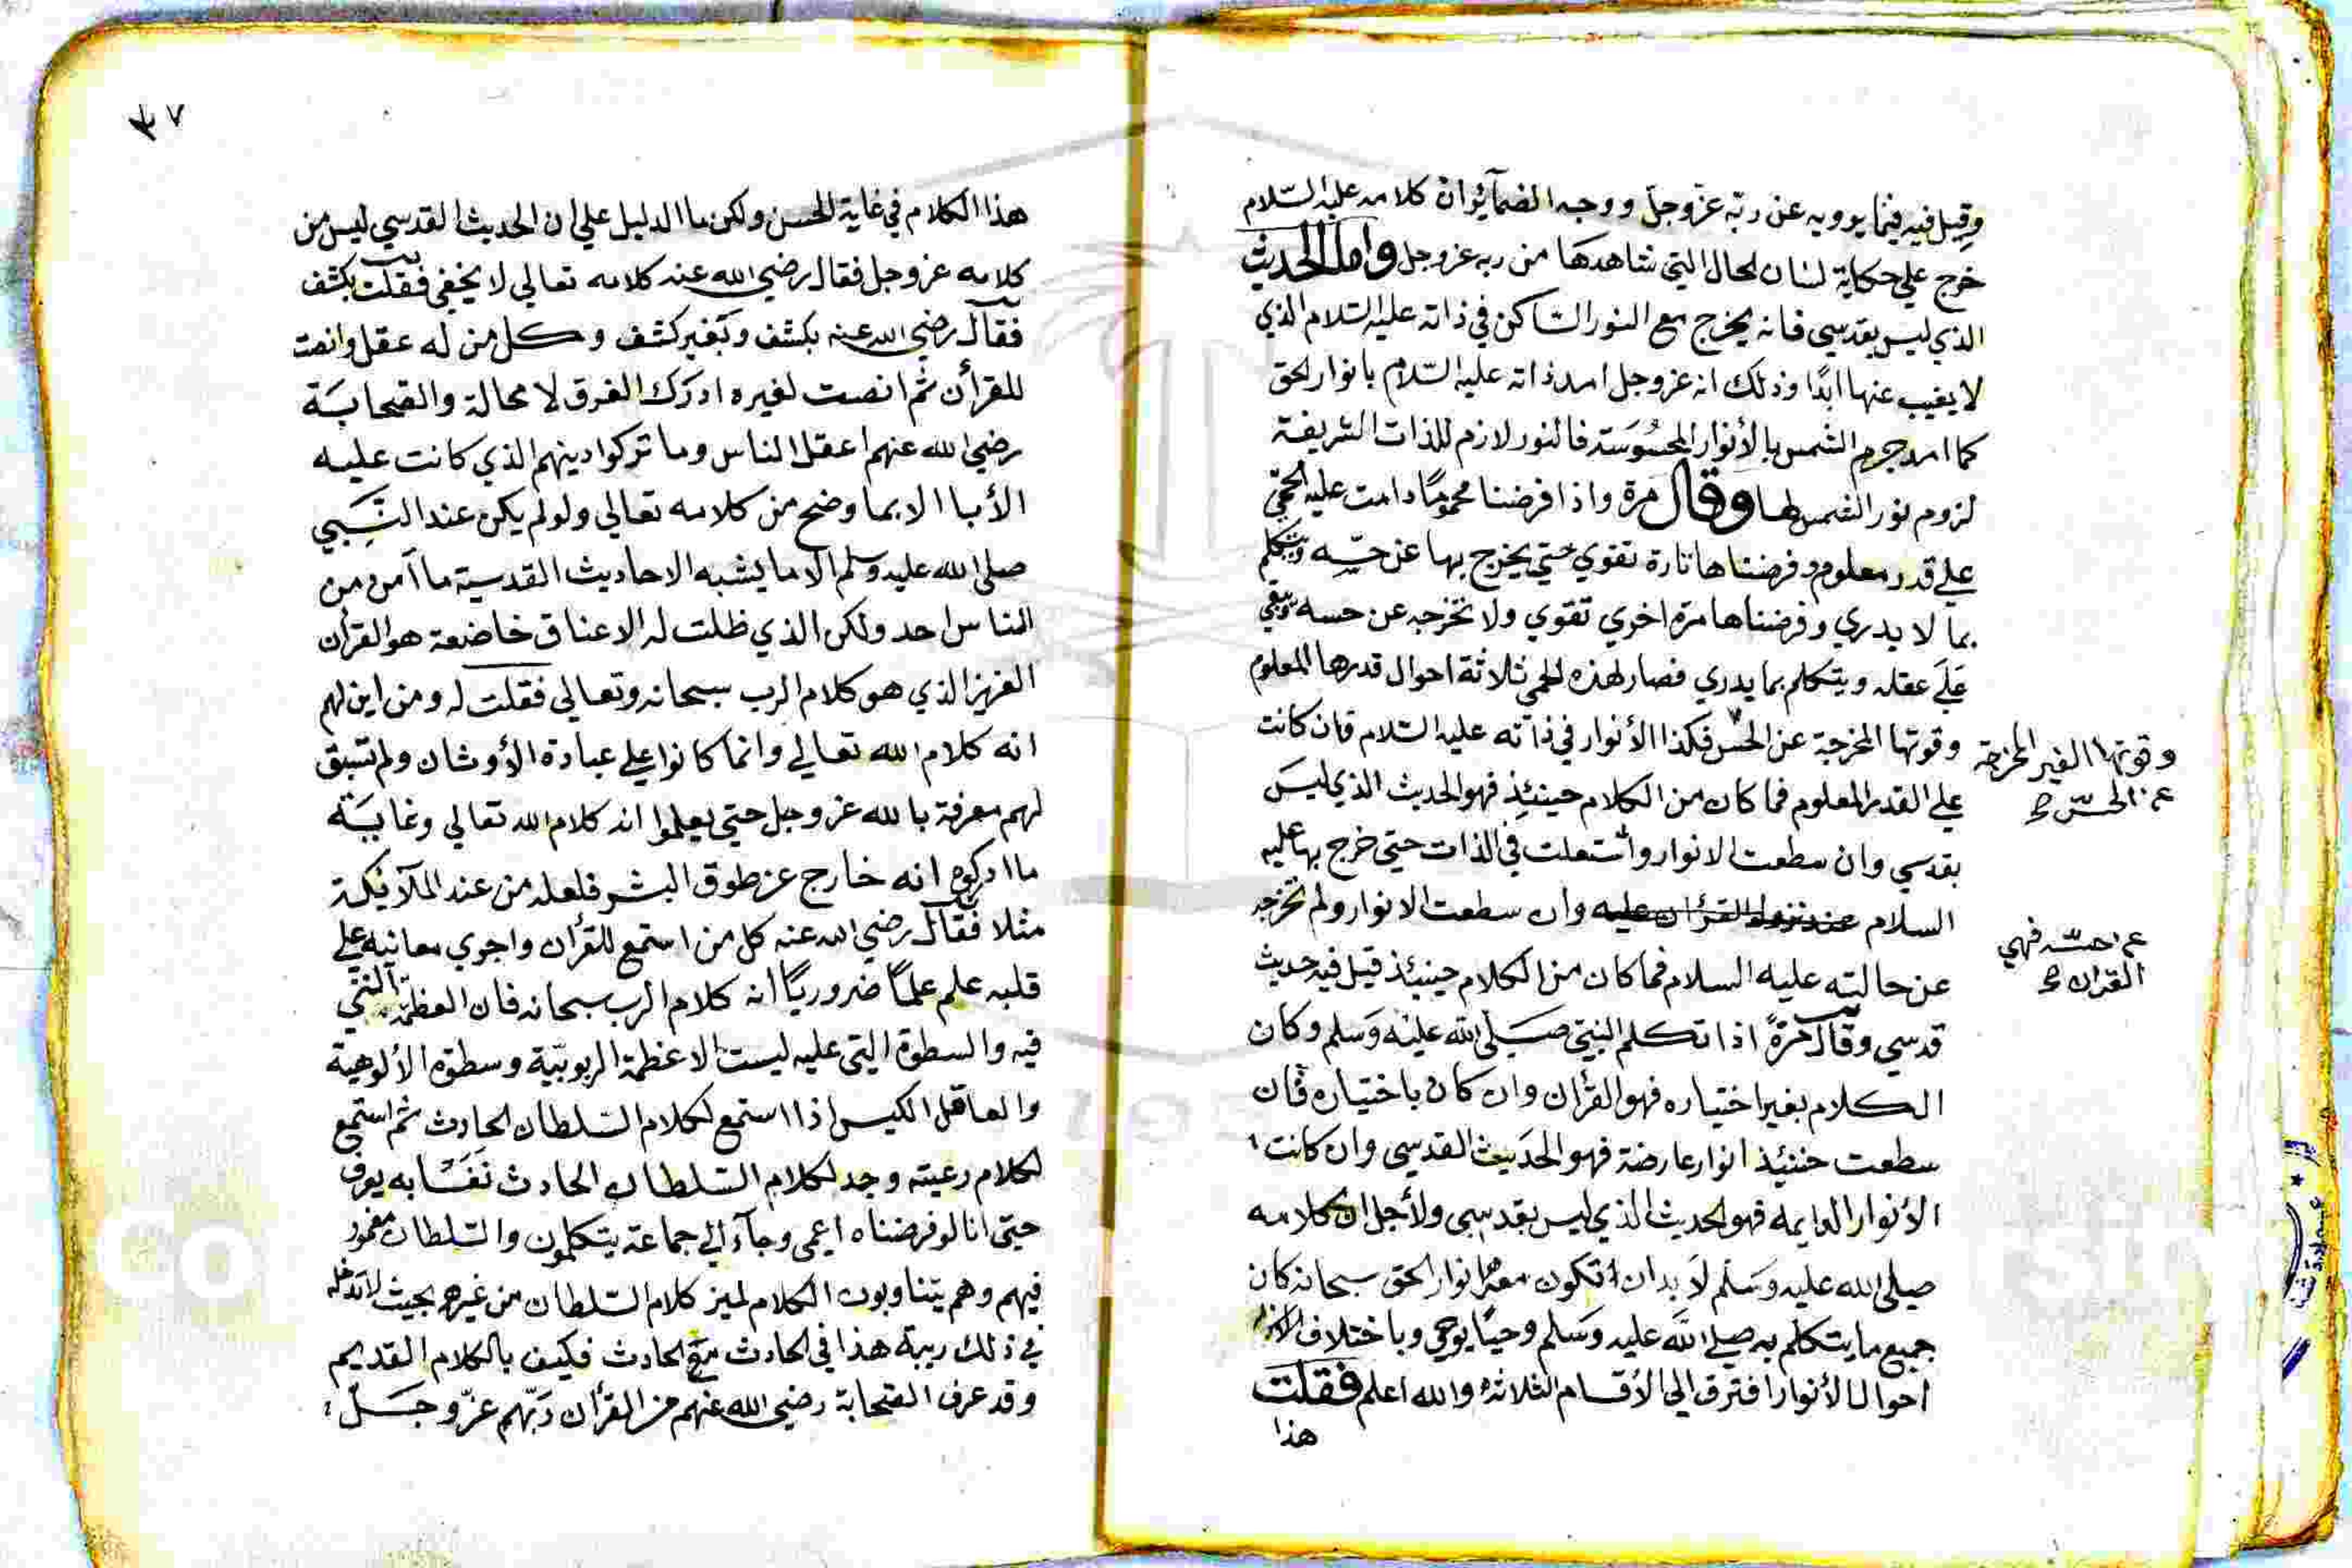 وقيل فيه فيما يرويه عن ربّه عزّ وجلّ ووجه الضمآئر ان كلامه عليه السّلام
خرج علي حكاية لسان الحال التي شاهدها من ربه عز وجل واما الحديث
الذي ليس بقدسي فانه يخرج مع النور الساكن في ذاته عليه السلام الذي
لا يغيب عنها ابدًا وذلك انه عز وجل امد ذاته عليه السّلام بانوار الحق
كما امد جرم الشمس بالأنوار المحسُوسَة فالنور لازم للذات الشريفة
لزوم نور الشمس لها وقال مرة واذا فرضنا محمومًا دامت عليه الحمّي
علي قدر معلوم وفرضناها تارة تقوي حتي يخرج بها عن حسّه ويتكلم
بما لا يدري وفرضناها مرة اخري تقوي ولا تخرجه عن حسه ويبقي
عَلَي عقله ويتكلم بما يدري فصار لهذه الحمي ثلاثة احوال قدرها المعلوم
وقوتها المخرجة عن الحس فكذا الأنوار في ذاته عليه السلام فان كانت
وقوتها الغير المخرجة
عن الحسّ صح
علي القدر المعلوم فما كان من الكلام حينئذٍ فهو الحديث الذي ليسَ
بقدسي وان سطعت الانوار واشتعلت في الذات حتي خرج بها عليه
السلام عند نزول القرأن عليه وان سطعت الانوار ولم تخرجه
عن حسّه فهي
القران صح
عن حالته عليه السلام فما كان من الكلام حينئذ قيل فيه حديث
قدسي وقال مَرةً اذا تكلم النبيّ صَلّي الله عليْه وَسلم وكان
الكلام بغير اختياره فهو القرأن وان كان باختياره فان
سطعت حنئيذ انوار عارضة فهو الحَديث القدسي وان كانت
الأنوار الدايمه فهو الحديث الذي ليس بقدسي ولأجل ان كلامه
صلي الله عليه وسَلم لا بد ان تكون معه انوار الحق سبحانه كان
جميع ما يتكلم به صلي الله عليه وسَلم وحيًا يوحي وباختلاف
احوال الأنوار افترق الي الأقسام الثلاثه والله اعلم فقلت
هذا
٧
هذا الكلام في غاية الحسن ولكن ما الدليل علي ان الحديث القدسي ليس من
كلامه عز وجل فقال رضي الله عنه كلامه تعالي لا يخفي فقلت بكشف
فقال رضي الله عنه بكشف وبغير كشف وكل من له عقل وانصت
للقرأن ثم انصت لغيره ادرَك الفرق لا محالة والصحابَة
رضي الله عنهم اعقل الناس وما تركوا دينهم الذي كانت عليه
الأبا الا بما وضح من كلامه تعالي ولو لم يكن عند النَّبي
صلي الله عليه وسلم الا ما يشبه الاحاديث القدسية ما آمن من
الناس احد ولكن الذي ظلت له الاعناق خاضعة هو القرأن
العزيز الذي هو كلام الرب سبحانه وتعالي فقلت له ومن اين لهم
انه كلام الله تعالي وانما كانوا علي عبادة الأوثان ولم تسبق
لهم معرفة بالله عز وجل حتي يعلموا انه كلام الله تعالي وغايَة
ما ادركوه انه خارج عن طوق البشر فلعله من عند الملآئكة
مثلا فقال رضي الله عنه كل من استمع للقرأن واجري معانيه علي
قلبه علم علمًا ضروريًا انه كلام الرب سبحانه فان العظمة التي
فيه والسطوة التي عليه ليست الا عظمة الربوبيّة وسطوة الألوهية
والعاقل الكيس اذا استمع لكلام السّلطان الحادث ثم استمع
لكلام رعيته وجد لكلام السّلطان الحادث نَفَسًا به يعرف
حتي انا لو فرضناه اعمي وجآء الي جماعة يتكلمون والسّلطان مغمور
فيهم وهم يتناوبون الكلام لميز كلام السّلطان من غيره بحيث لا تدخله
في ذلك ريبة هذا في الحادث مع الحادث فكيف بالكلام القديم
وقد عرف الصّحابة رضي الله عنهم من القرأن رَبّهم عزّ وجَلّ